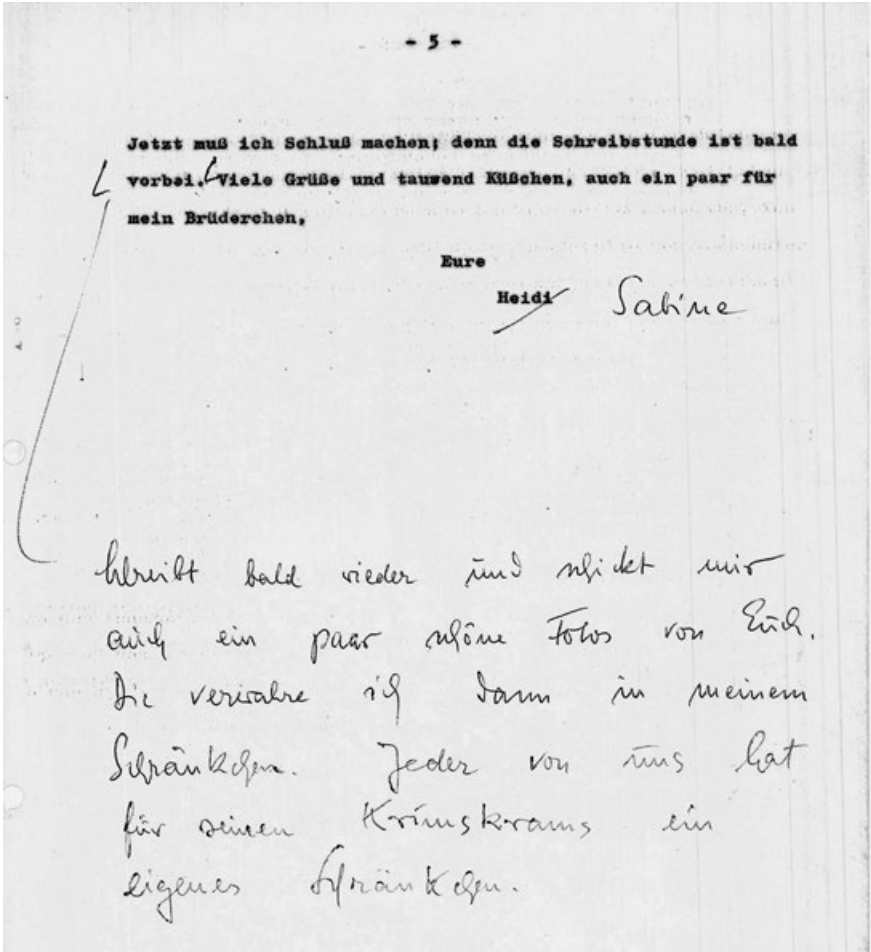 - 5 -
Jetzt muß ich Schluß machen; denn die Schreibstunde ist bald
vorbei. Viele Grüße und tausend Küßchen, auch ein paar für
mein Brüderchen,
Eure
Heidi Sabine
Schreibt bald wieder und schickt mir
auch ein paar schöne Fotos von Euch.
Die verwahre ich dann in meinem
Schränkchen. Jeder von uns hat
für seinen Krimskrams ein
eigenes Schränkchen.